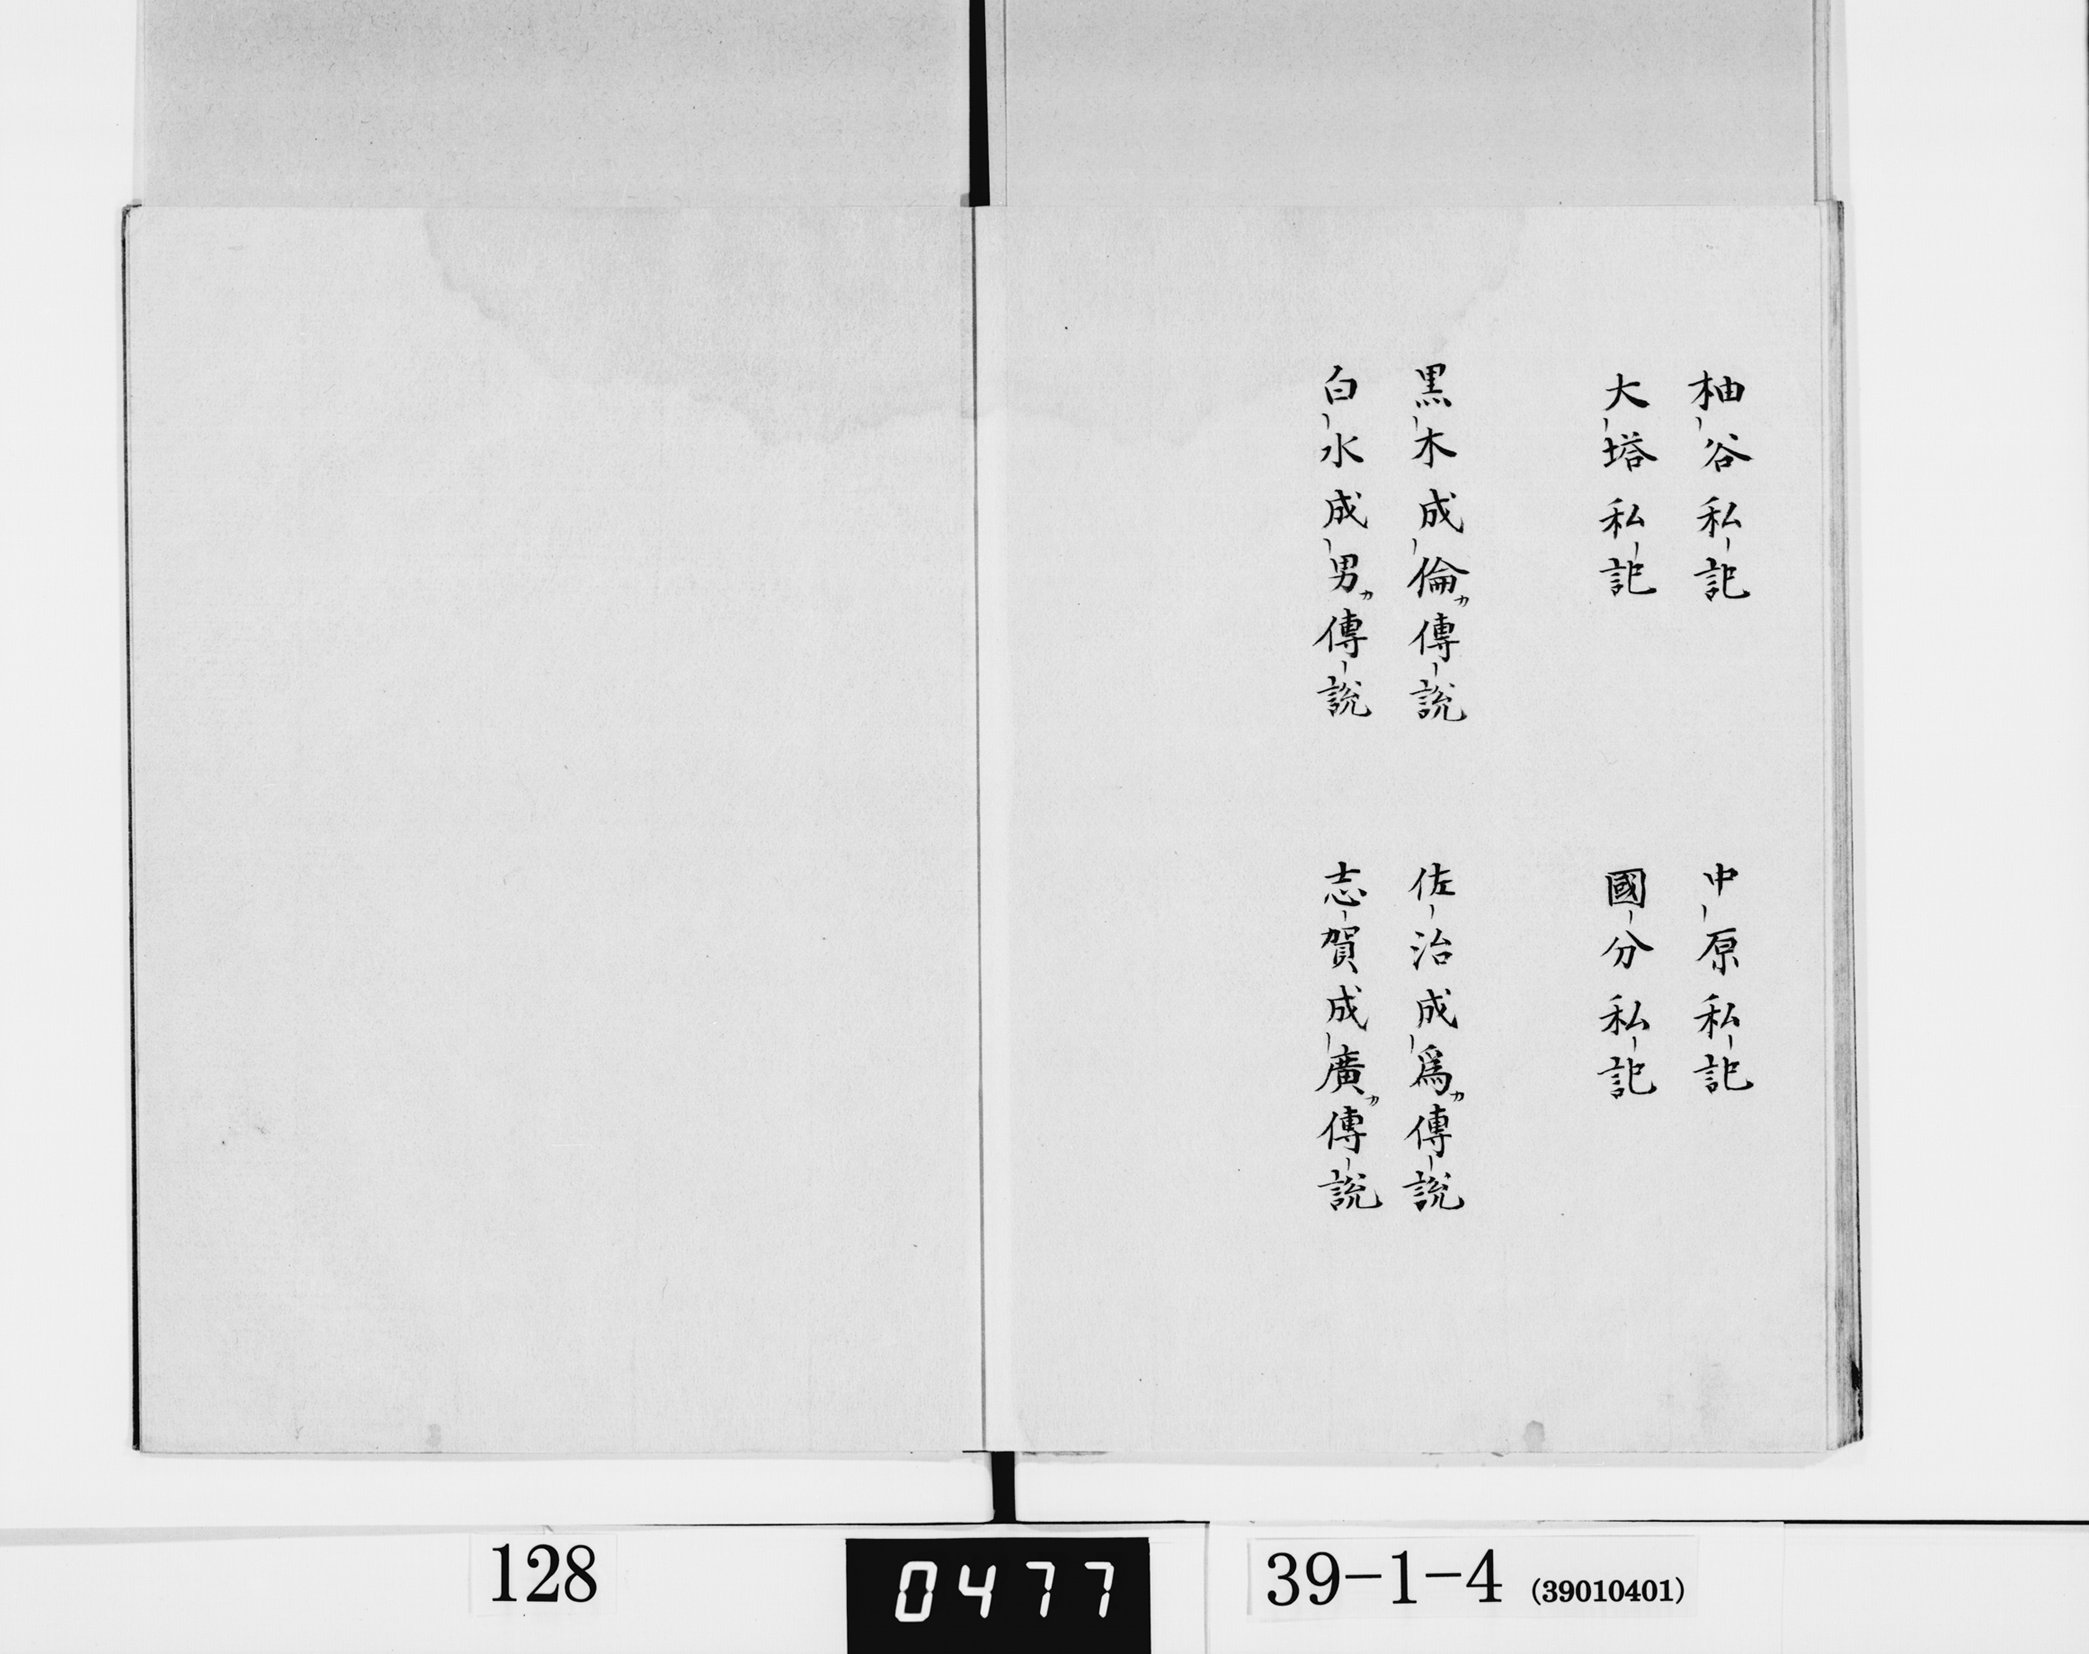 柚谷私記　中原私記
大塔私記　國分私記
黒木成倫ガ傳説　佐治成爲ガ傳説
白水成男ガ傳説　志賀成廣ガ傳説
128
0477
39-1-4 (39010401)